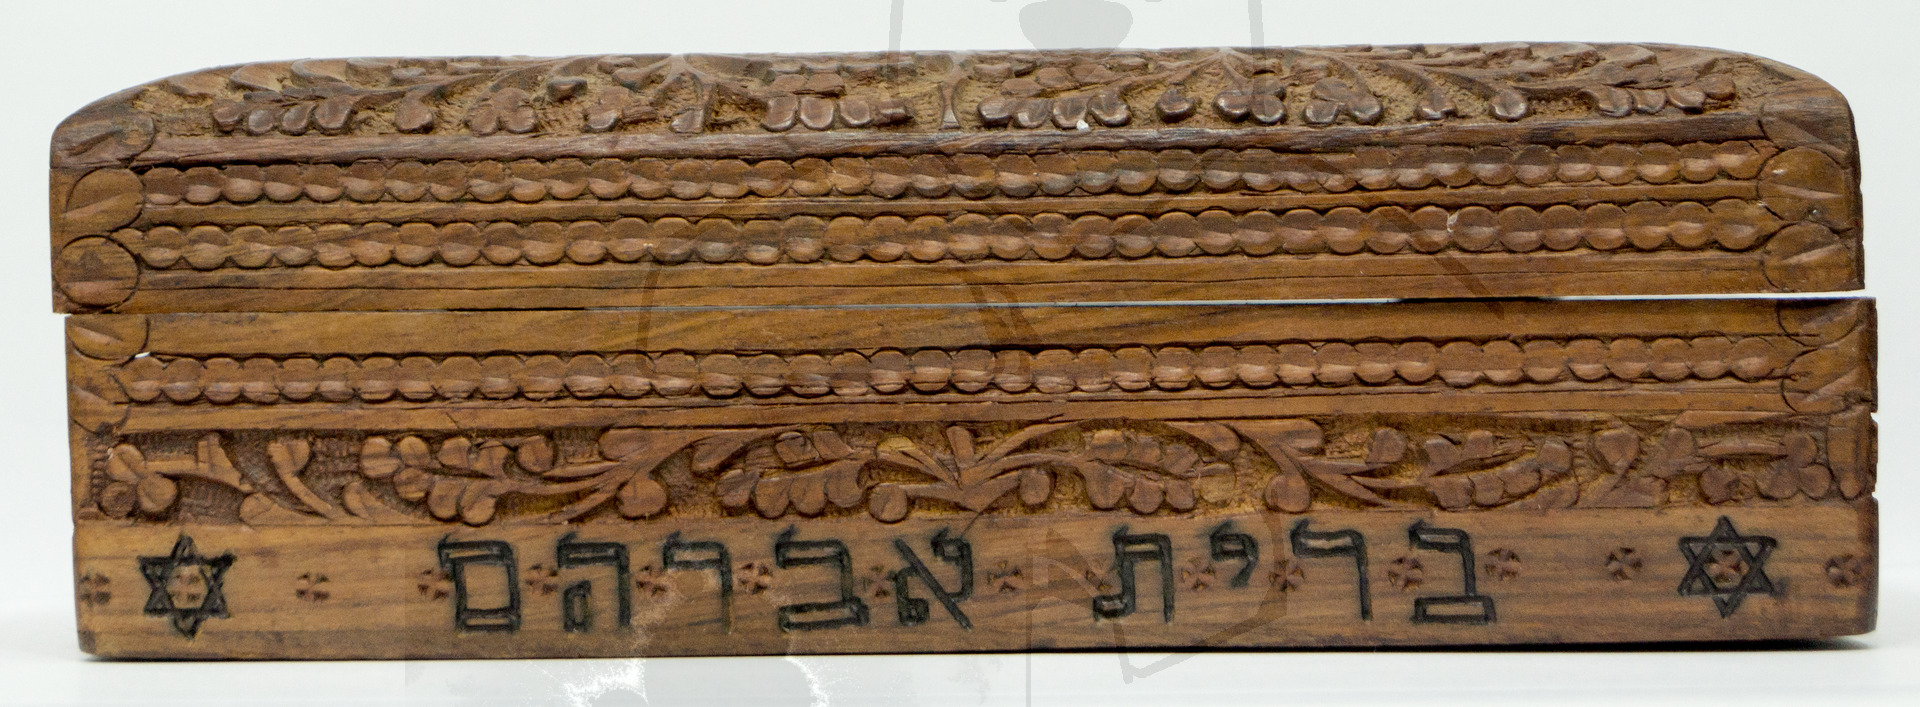 ברית אברהם